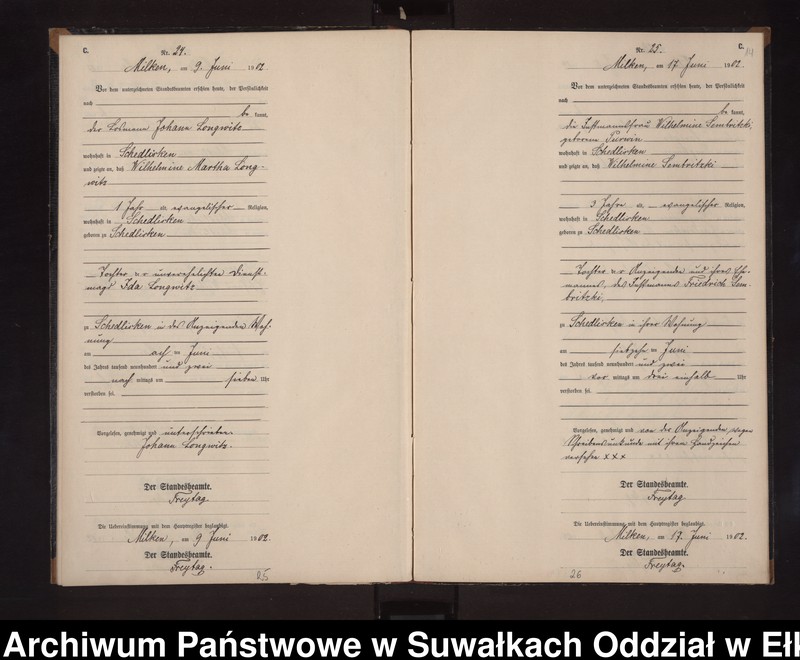 C.
Nr. 24.
Milken, am 9. Juni 1902
Vor dem unterzeichneten Standesbeamten erschien heute, der Persönlichkeit
nach
be kannt,
der Losmann Johann Longwitz
wohnhaft in Schedlisken
und zeigte an, daß Wilhelmine Martha Long-
witz
1 Jahr evangelischer Religion,
wohnhaft in Schedlisken
geboren zu Schedlisken
Tochter der unverehelichten Dienst-
magd Ida Longwitz
zu Schedlisken in des Anzeigenden Woh-
nung
am acht ten Juni
des Jahres tausend neunhundert und zwei
nach mittags um sieben Uhr
verstorben sei.
Vorgelesen, genehmigt und unterschrieben
Johann Longwitz.
Der Standesbeamte.
Freytag.
Die Uebereinstimmung mit dem Hauptregister beglaubigt.
Milken, am 9 Juni 1902.
Der Standesbeamte.
Freytag.
25
C.
14
Nr. 25.
Milken, am 17 Juni 1902.
Vor dem unterzeichneten Standesbeamten erschien heute, der Persönlichkeit
nach
be kannt,
die Instmannsfrau Wilhelmine Sembritzki,
geborene
wohnhaft in Schedlisken
und zeigte an, daß Wilhelmine Sembritzki
3 Jahre evangelischer Religion,
wohnhaft in Schedlisken
geboren zu Schedlisken
Tochter der Anzeigenden und ihres Ehe-
mannes, des Instmanns Friedrich Sem-
britzki,
zu Schedlisken in ihrer Wohnung
am siebzehn ten Juni
des Jahres tausend neunhundert und zwei
vor mittags um drei einhalb Uhr
verstorben sei.
Vorgelesen, genehmigt und von der Anzeigenden wegen
Schreibensunkunde mit ihrem Handzeichen
versehen xxx
Der Standesbeamte.
Freytag.
Die Uebereinstimmung mit dem Hauptregister beglaubigt.
Milken, am 17. Juni 1902.
Der Standesbeamte.
Freytag.
26
Archiwum Państwowe w Suwałkach Oddział w Ełk